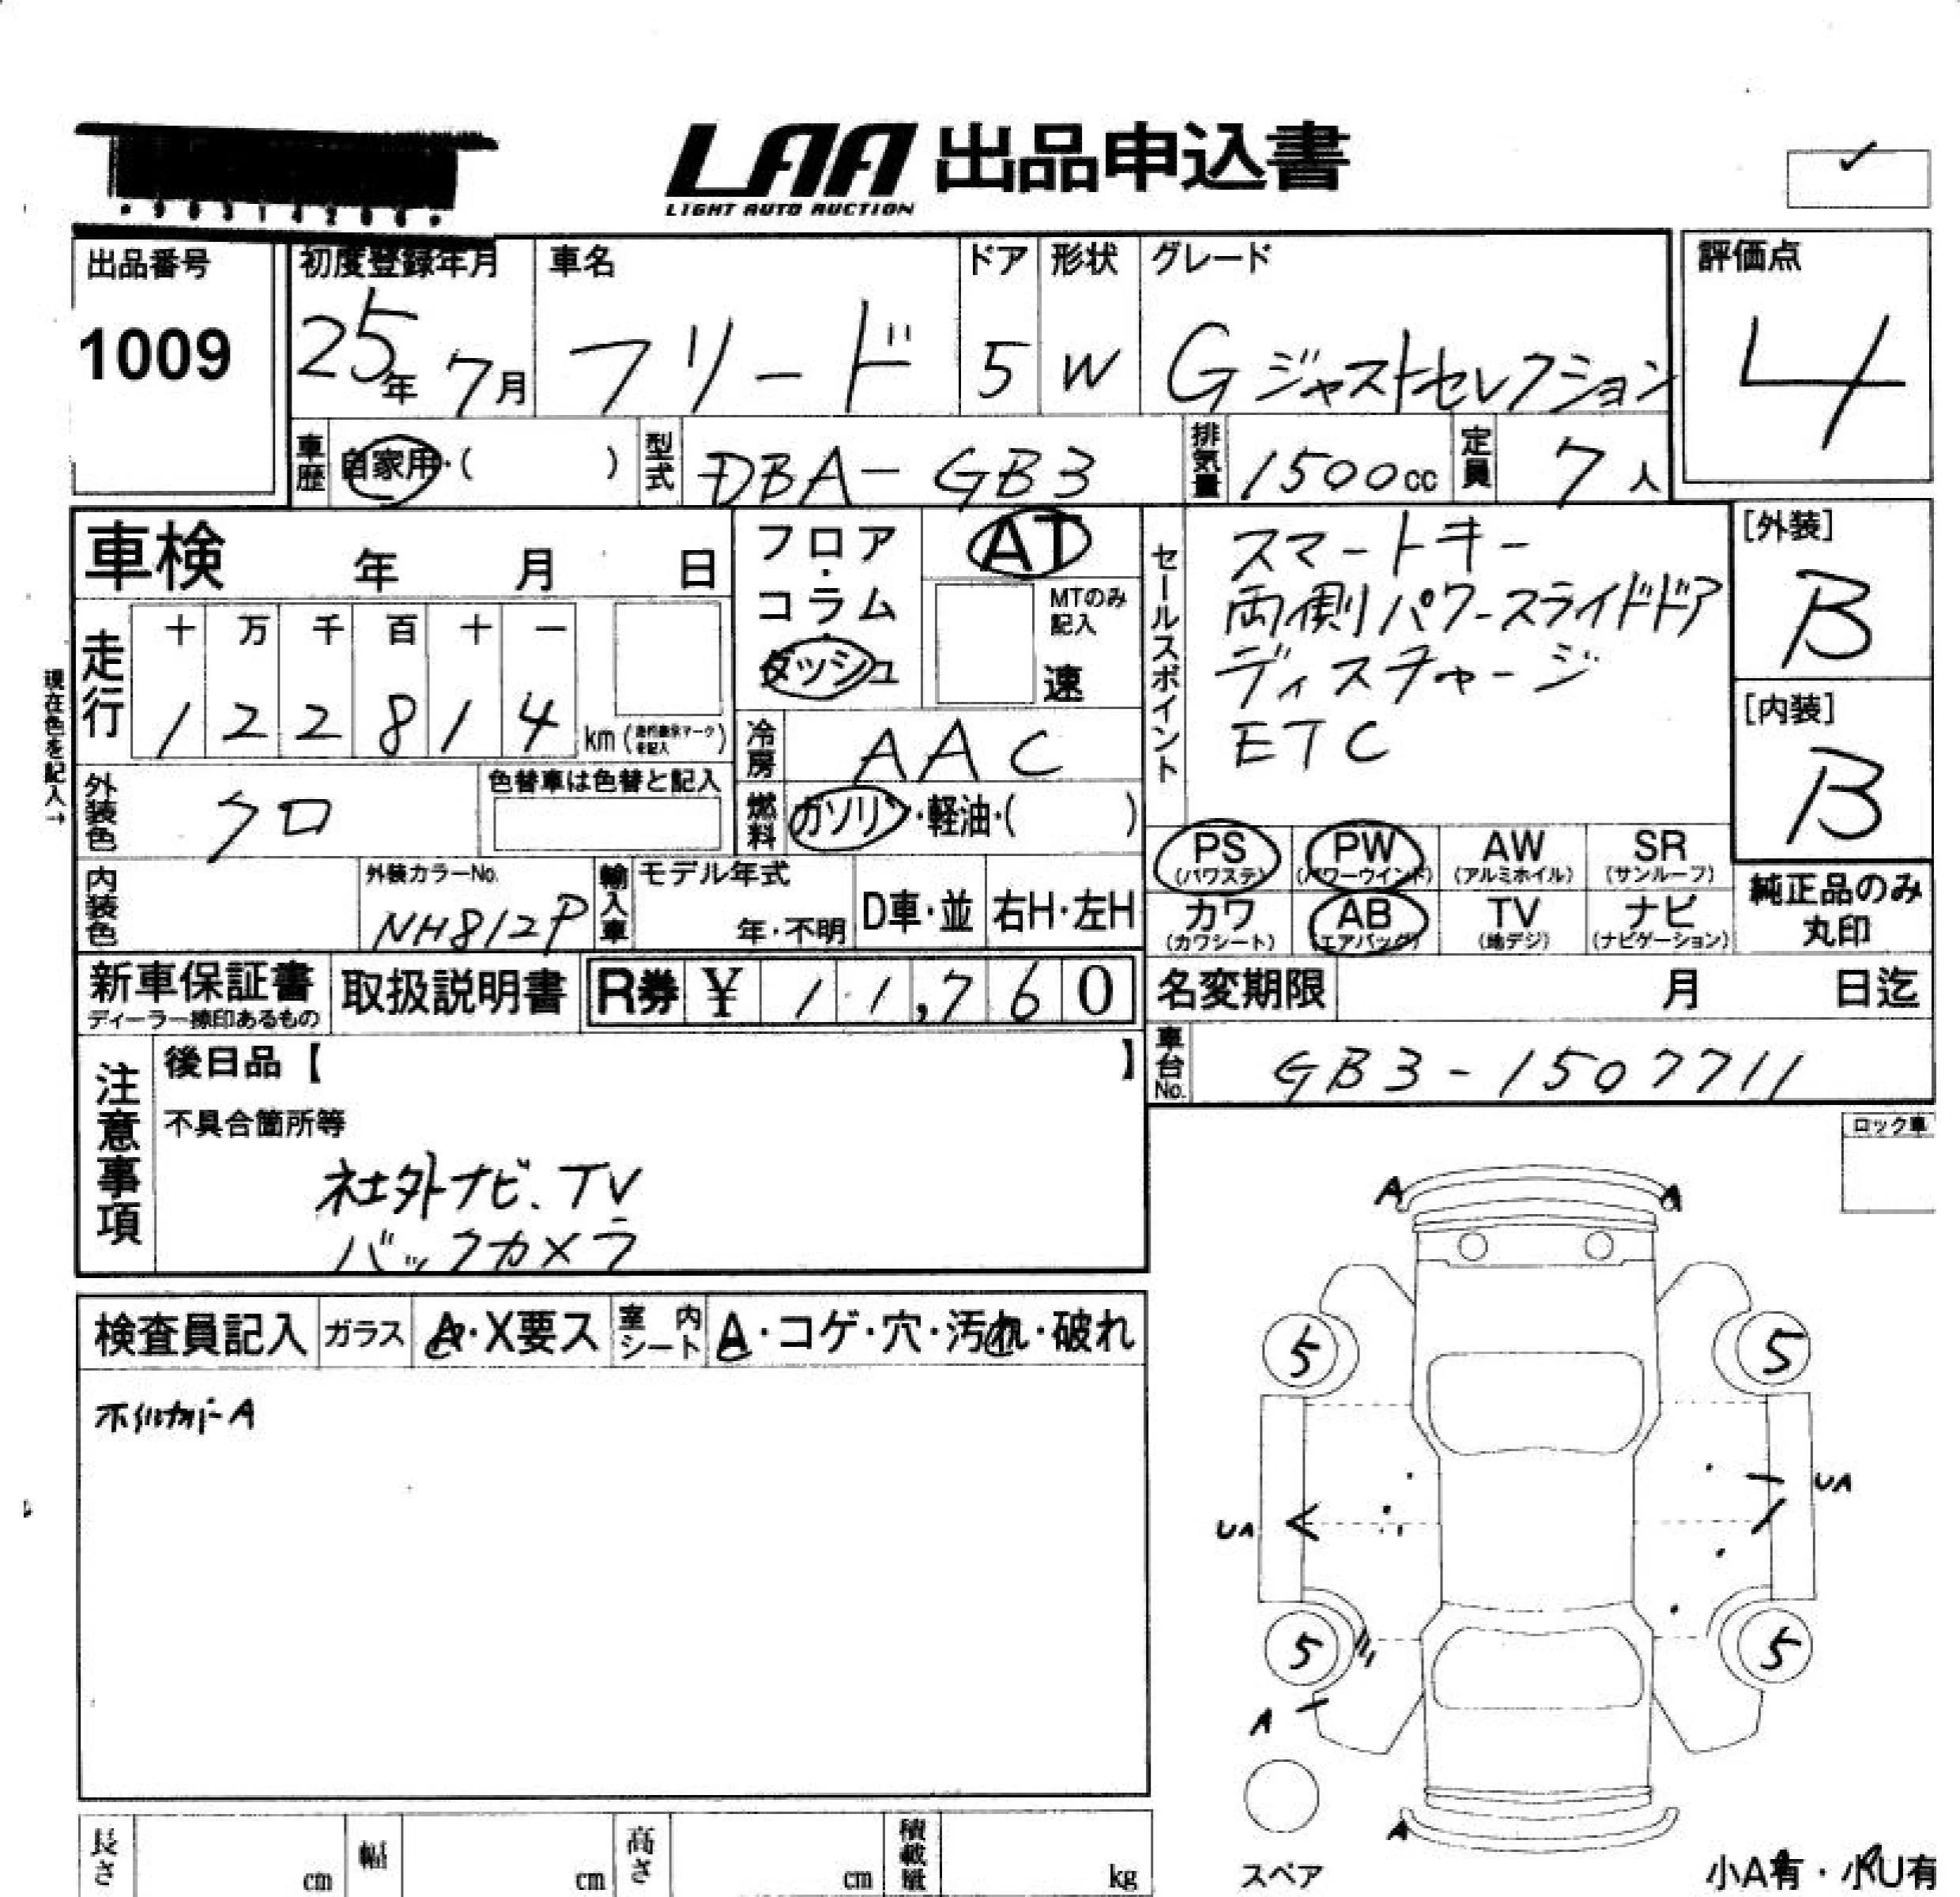 LAA 出品申込書
LIGHT AUTO AUCTION
出品番号
1009
初度登録年月
25年 7月
車名
フリード
ドア
5
形状
W
グレード
Gジャストセレクション
評価点
4
車歴 自家用・( )
型式 DBA-GB3
排気量 1500cc
定員 7人
車検 年 月 日
フロア・コラム・ダッシュ
AT
MTのみ記入
速
セールスポイント
スマートキー
両側パワースライドドア
ディスチャージ
ETC
[外装]
B
[内装]
B
現在色を記入→
走行 十 万 千 百 十 一
1 2 2 8 1 4 km
冷房 AAC
外装色 クロ
色替車は色替と記入
燃料 ガソリン・軽油・( )
PS (パワステ)
PW (パワーウインド)
AW (アルミホイル)
SR (サンルーフ)
カワ (カワシート)
AB (エアバッグ)
TV (地デジ)
ナビ (ナビゲーション)
純正品のみ
丸印
内装色
外装カラーNo.
NH812P
輸入車
モデル年式
年・不明
D車・並
右H・左H
新車保証書
ディーラー捺印あるもの
取扱説明書
R券 ¥ 11,760
名変期限 月 日迄
車台No. GB3-1507711
注意事項
後日品【 】
不具合箇所等
社外ナビ、TV
バックカメラ
ロック車
検査員記入
ガラス A・X要ス
室内シート A・コゲ・穴・汚れ・破れ
ホイルカバーA
A A
5 5
UA UA
5 5
A
A
スペア
小A有・小U有
長さ cm
幅 cm
高さ cm
積載量 kg